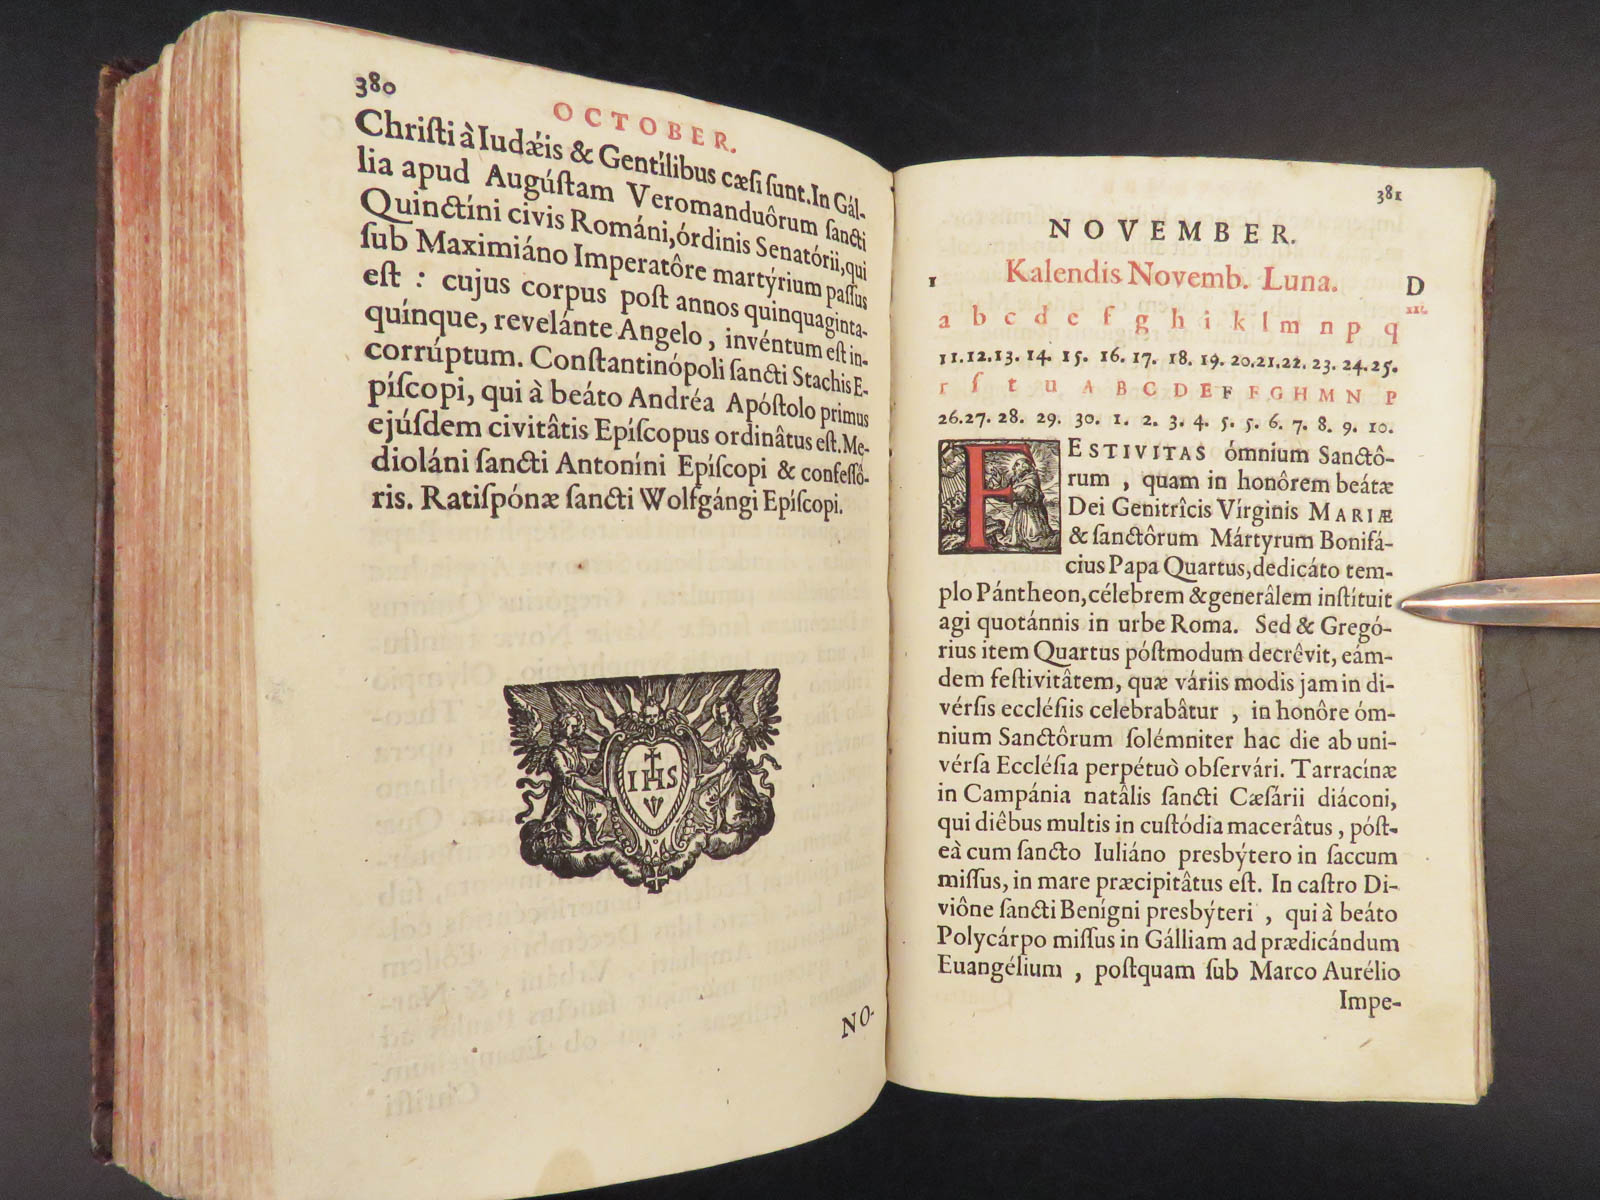 380
OCTOBER.
Chriſti à Iudǽis & Gentílibus cæſi ſunt. In Gál-
lia apud Augúſtam Veromanduôrum ſancti
Quinctíni civis Románi, órdinis Senatórii, qui
ſub Maximiáno Imperatôre martýrium paſſus
eſt : cujus corpus poſt annos quinquaginta-
quínque, revelánte Angelo , invéntum eſt in-
corrúptum. Conſtantinópoli ſancti Stachis E-
píſcopi, qui à beáto Andréa Apóſtolo primus
ejúſdem civitâtis Epíſcopus ordinâtus eſt. Me-
dioláni ſancti Antoníni Epíſcopi & confeſſô-
ris. Ratiſpónæ ſancti Wolfgángi Epíſcopi.
IHS
NO-
381
NOVEMBER.
1 Kalendis Novemb. Luna. D
a b c d e f g h i k l m n p q
11. 12. 13. 14. 15. 16. 17. 18. 19. 20. 21. 22. 23. 24. 25.
r ſ t u A B C D E F F G H M N P
26. 27. 28. 29. 30. 1. 2. 3. 4. 5. 5. 6. 7. 8. 9. 10.
FESTIVITAS ómnium Sanctô-
rum , quam in honôrem beátæ
Dei Genitrîcis Vírginis MARIÆ
& ſanctôrum Mártyrum Bonifá-
cius Papa Quartus, dedicáto tem-
plo Pántheon, célebrem & generâlem inſtítuit
agi quotánnis in urbe Roma. Sed & Gregó-
rius item Quartus póſtmodum decrêvit, eám-
dem feſtivitâtem, quæ váriis modis jam in di-
vérſis eccléſiis celebrabâtur , in honôre óm-
nium Sanctôrum ſolémniter hac die ab uni-
vérſa Eccléſia perpétuò obſervári. Tarracínæ
in Campánia natâlis ſancti Cæſárii diáconi,
qui diêbus multis in cuſtódia macerâtus , póſt-
eà cum ſancto Iuliáno presbýtero in ſaccum
miſſus, in mare præcipitâtus eſt. In caſtro Di-
viône ſancti Benígni presbýteri , qui à beáto
Polycárpo miſſus in Gálliam ad prædicándum
Euangélium , poſtquam ſub Marco Aurélio
Impe-